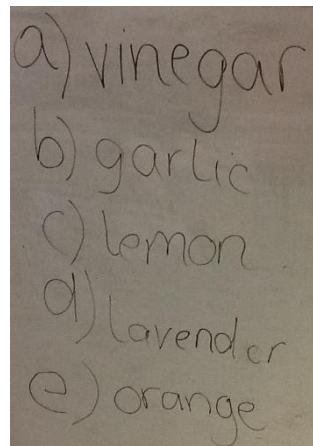 a) vinegar
b) garlic
c) lemon
d) lavender
e) orange